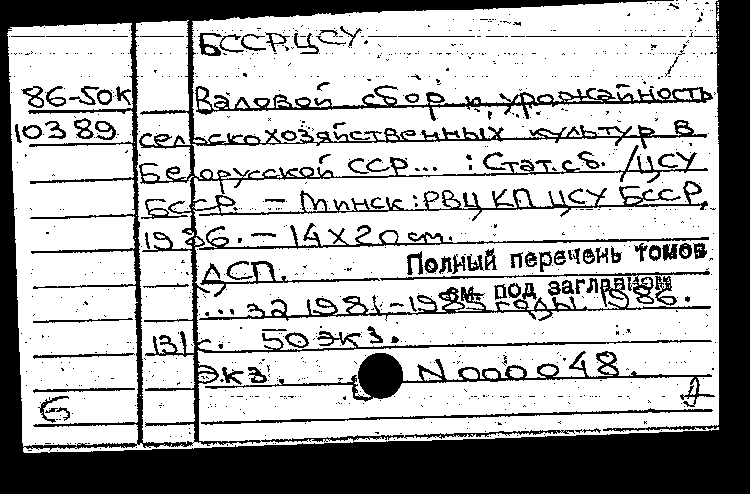 БССР. ЦСУ.
86-50к Валовой сбор и урожайность
10389 сельскохозяйственных культур в
Белорусской ССР... : Стат. сб. / ЦСУ
БССР. - Минск : РВЦ КП ЦСУ БССР,
1986. - 14 х 20 см.
ДСП. Полный перечень томов
см. под заглавием
... за 1981-1985 годы. 1986.
131 с. 50 экз.
Экз. N 000048.
Б